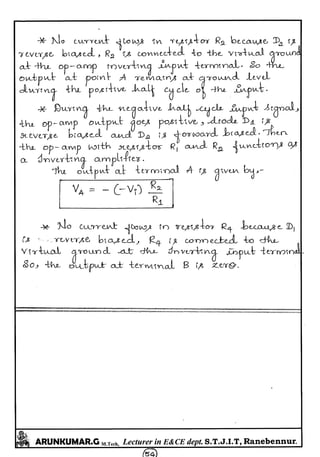 -*- No current flows in resistor R2 because D2 is
reverse biased, R2 is connected to the virtual ground
at the op-amp inverting input terminal. So the
output at point A remains at ground level
during the positive half cycle of the Input.
-*- During the negative half cycle Input signal,
the op-amp output goes positive, diode D1 is
reverse biased and D2 is forward biased. Then
the op-amp with resistor R1 and R2 functions as
a Inverting amplifier.
The output at terminal A is given by,-
VA = - (-Vi) R2
R1
-*- No current flows in resistor R4 because D1
is reverse biased, R4 is connected to the
Virtual ground at the Inverting input terminal
So, the output at terminal B is zero.
ARUNKUMAR.G M.Tech, Lecturer in E&CE dept. S.T.J.I.T, Ranebennur.
54